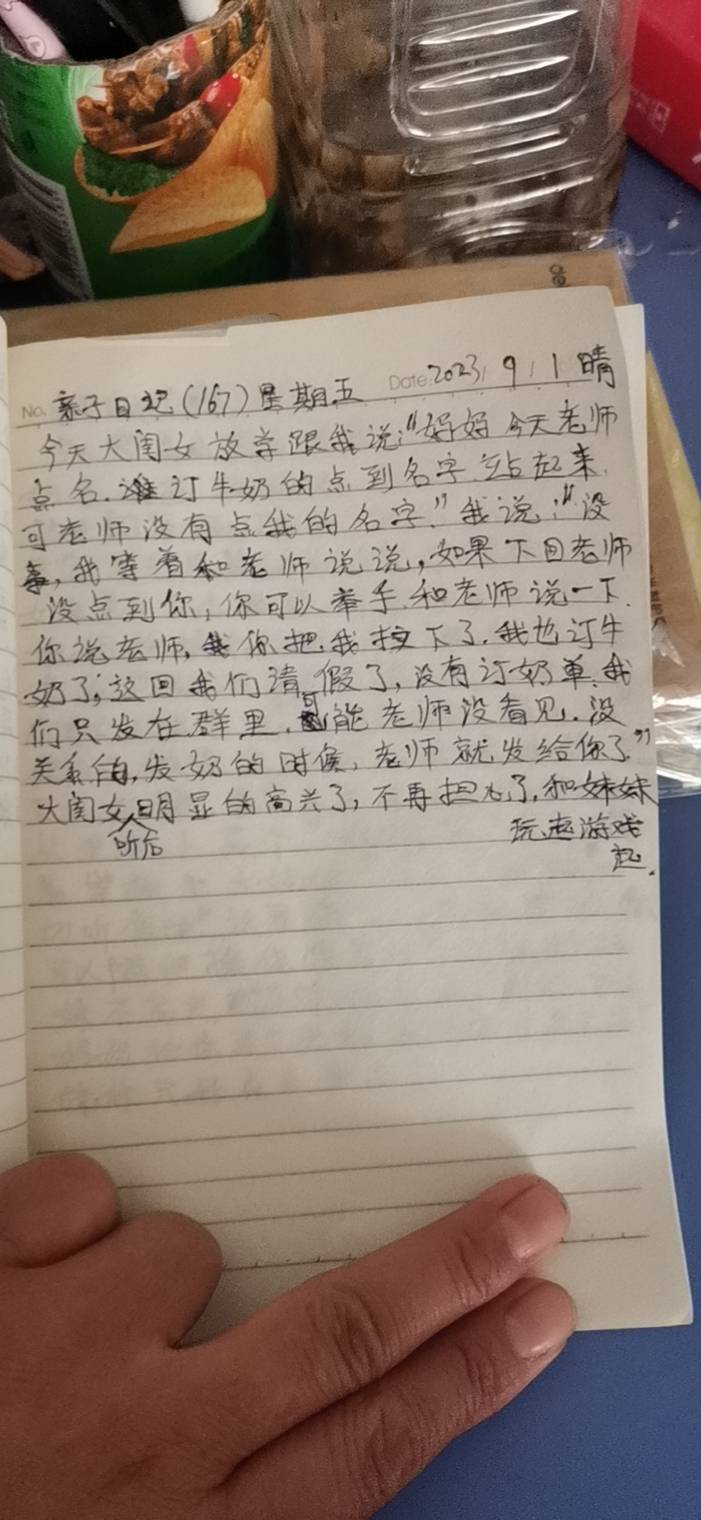 No. 亲子日记(167)星期五 Date: 2023 / 9 / 1 晴
今天大闺女放学跟我说:"妈妈今天老师
点名.谁订牛奶的点到名字站起来.
可老师没有点我的名字."我说:"没
事,我等着和老师说说,如果下回老师
没点到你,你可以举手.和老师说一下.
你说老师,你把我拉下了.我也订牛
奶了,这回我们请假了,没有订奶单.我
们只发在群里,可能老师没看见.没
关系的,发奶的时候,老师就发给你了"
大闺女听后明显的高兴了,不再担心了,和妹妹
玩起游戏
起.